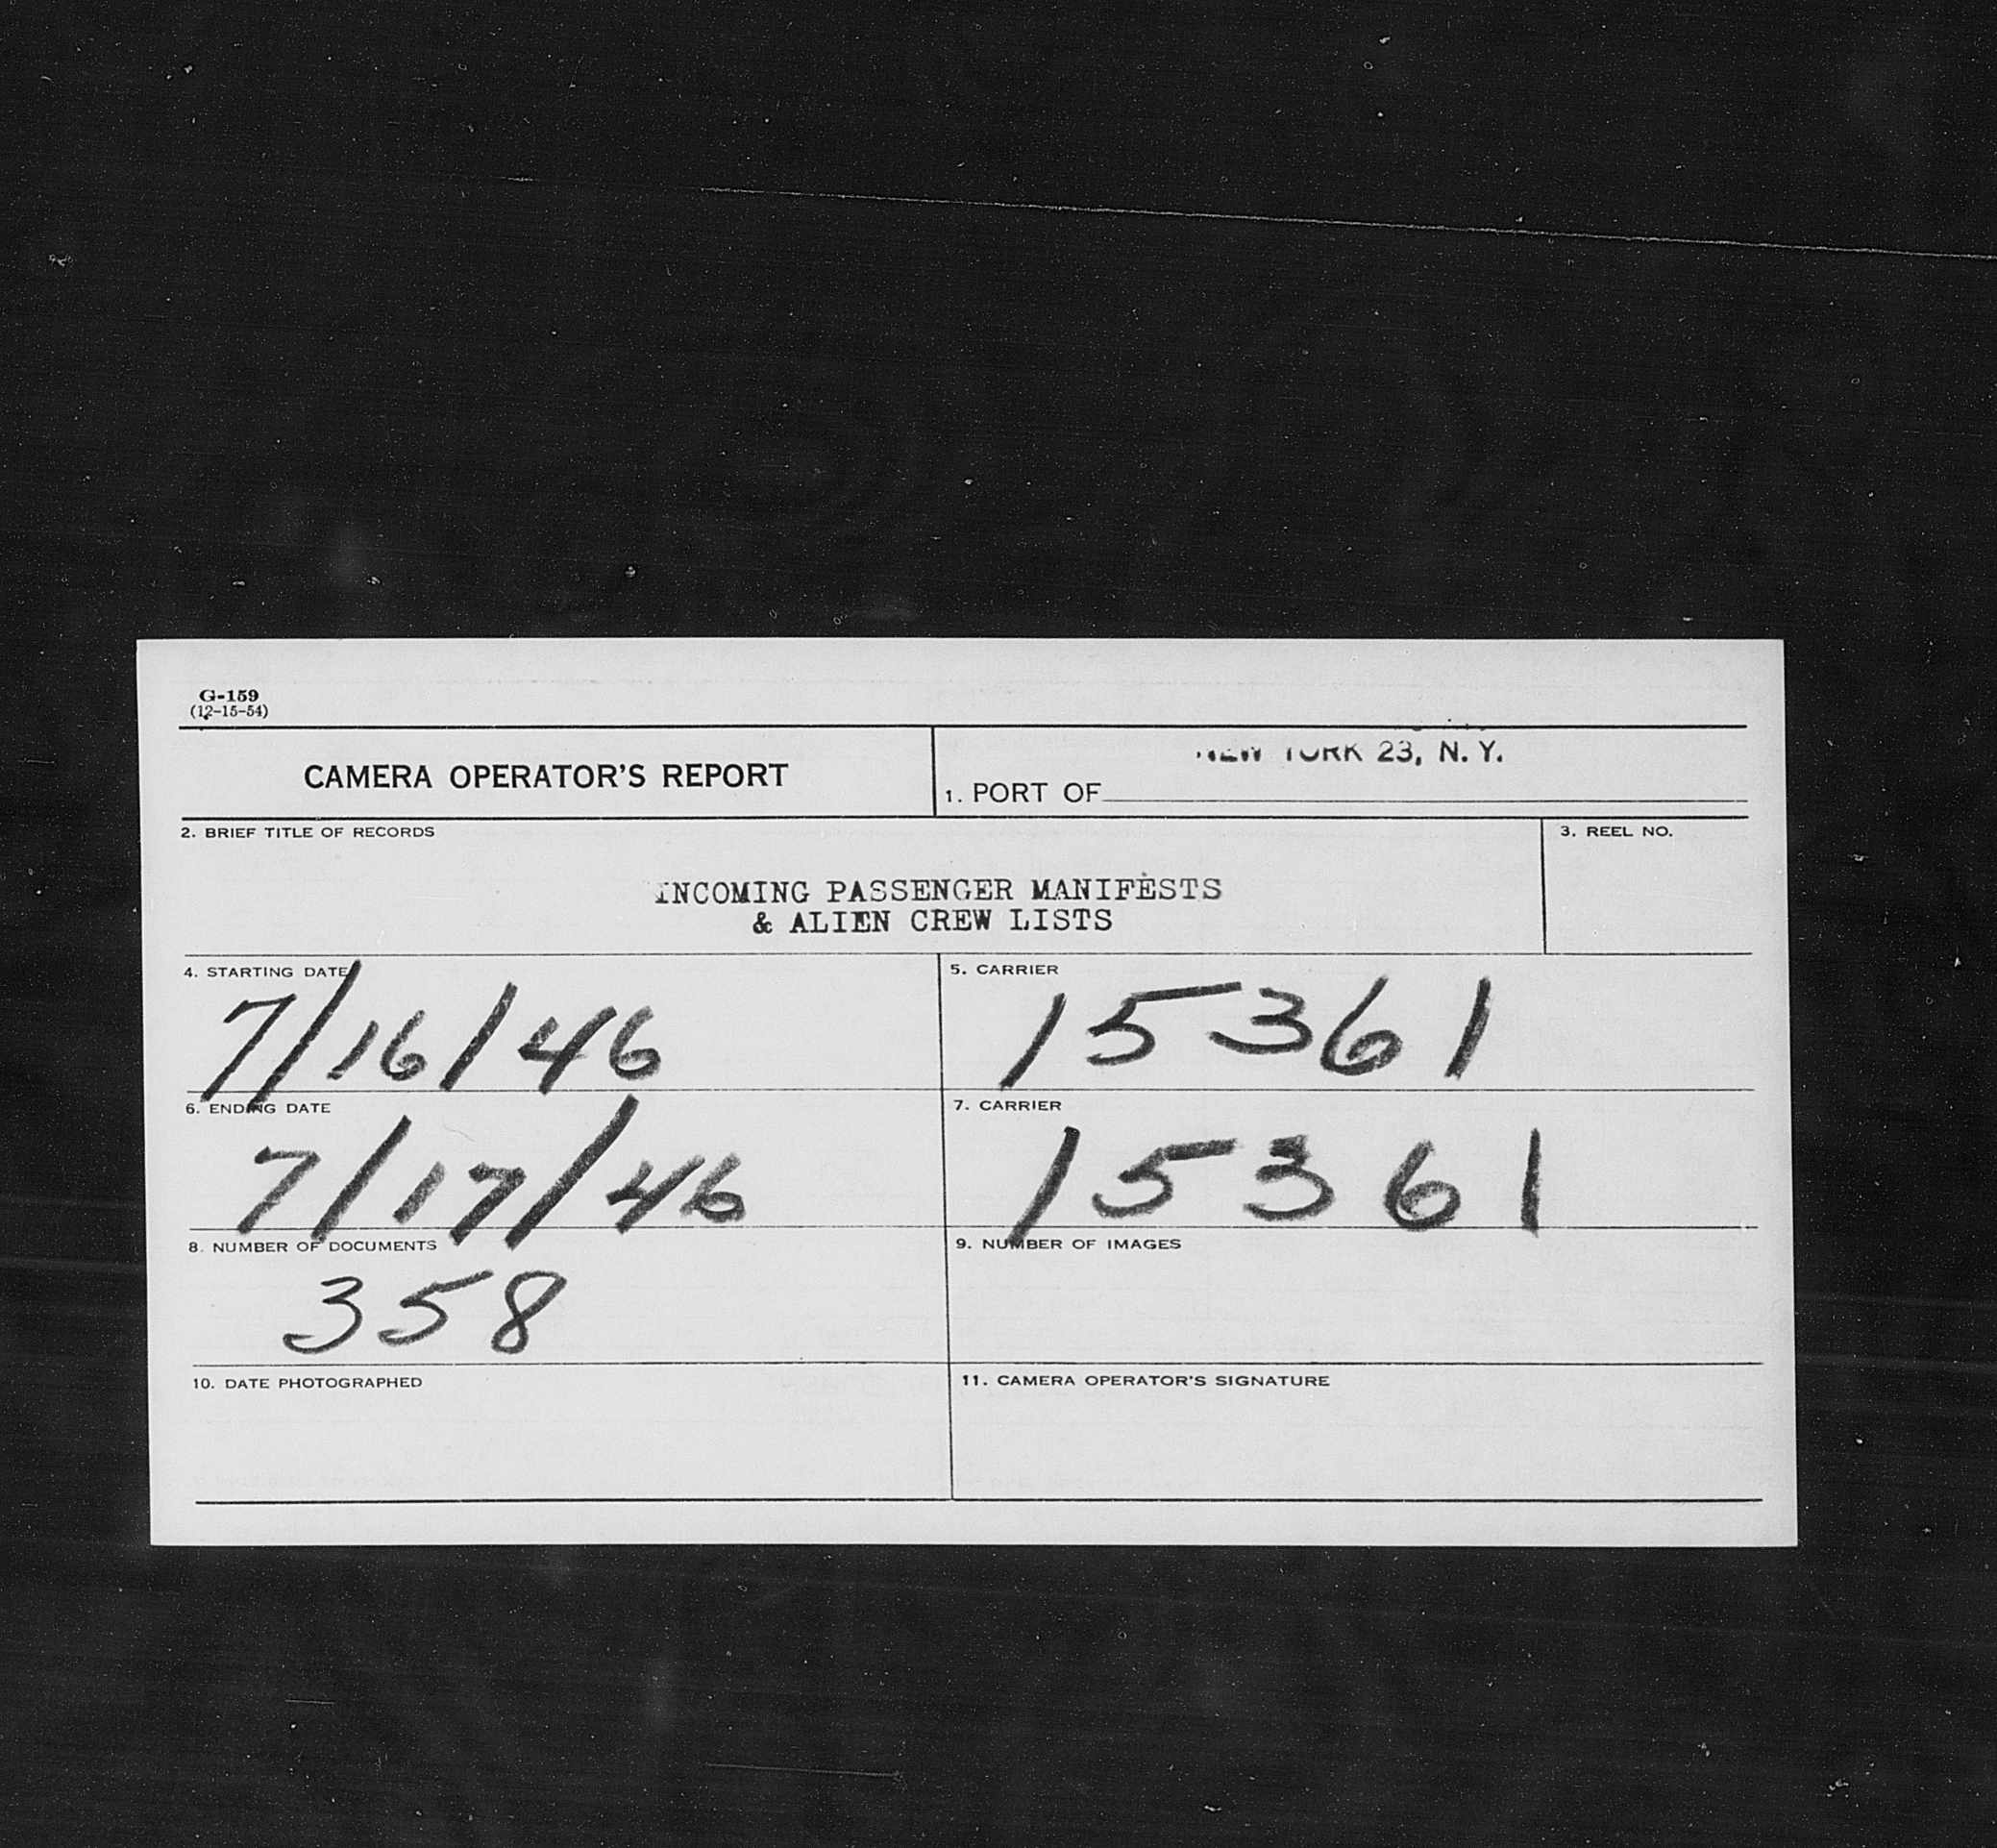 G-159
(12-15-54)
CAMERA OPERATOR'S REPORT
NEW YORK 23, N. Y.
1. PORT OF
2. BRIEF TITLE OF RECORDS
3. REEL NO.
INCOMING PASSENGER MANIFESTS
& ALIEN CREW LISTS
4. STARTING DATE
5. CARRIER
7/16/46
15361
6. ENDING DATE
7. CARRIER
7/17/46
15361
8. NUMBER OF DOCUMENTS
9. NUMBER OF IMAGES
358
10. DATE PHOTOGRAPHED
11. CAMERA OPERATOR'S SIGNATURE